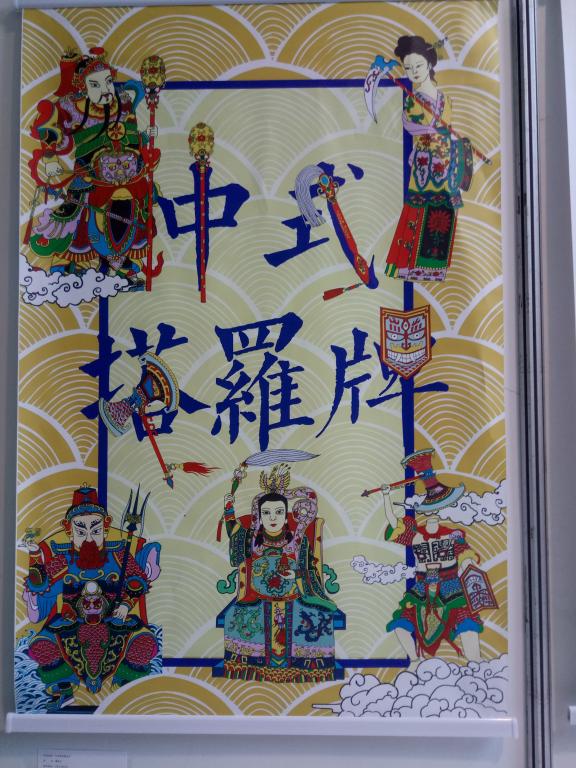 中式
塔羅牌